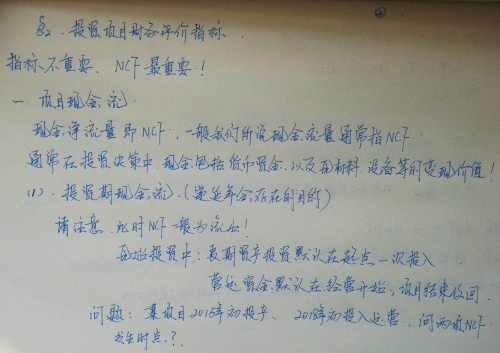 ④
§2. 投资项目财务评价指标.
指标不重要, NCF最重要!
一. 项目现金流
现金净流量即NCF, 一般我们所说现金流量通常指NCF.
通常在投资决策中, 现金包括货币资金, 以及原材料, 设备等的变现价值!
(1). 投资期现金流. (递延年金存在的目的)
请注意, 此时NCF一般为流出!
原始投资中: 长期资产投资默认在起点一次投入
营运资金默认在经营开始, 项目结束收回.
问题: 某项目2015年初投产, 2018年初投入运营, 问两项NCF
发生时点?